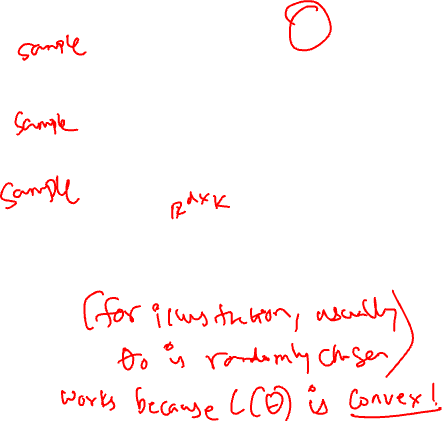 sample
sample
sample
ℝ^{d×K}
(for illustration, usually
θ₀ is randomly chosen)
works because L(θ) is convex!